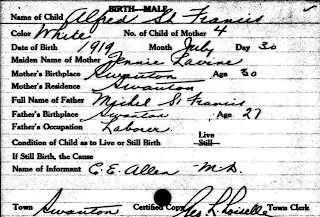 BIRTH—MALE
Name of Child Alfred St Francis
Color White No. of Child of Mother 4
Date of Birth 1919 Month July Day 30
Maiden Name of Mother Jennie Lavine
Mother's Birthplace Swanton Age 30
Mother's Residence Swanton
Full Name of Father Michel St Francis
Father's Birthplace Swanton Age 27
Father's Occupation Laborer
Live
Condition of Child as to Live or Still Birth Still
If Still Birth, the Cause
Name of Informant C. E. Allen M.D.
Town Swanton Certified Copy Loiselle Town Clerk